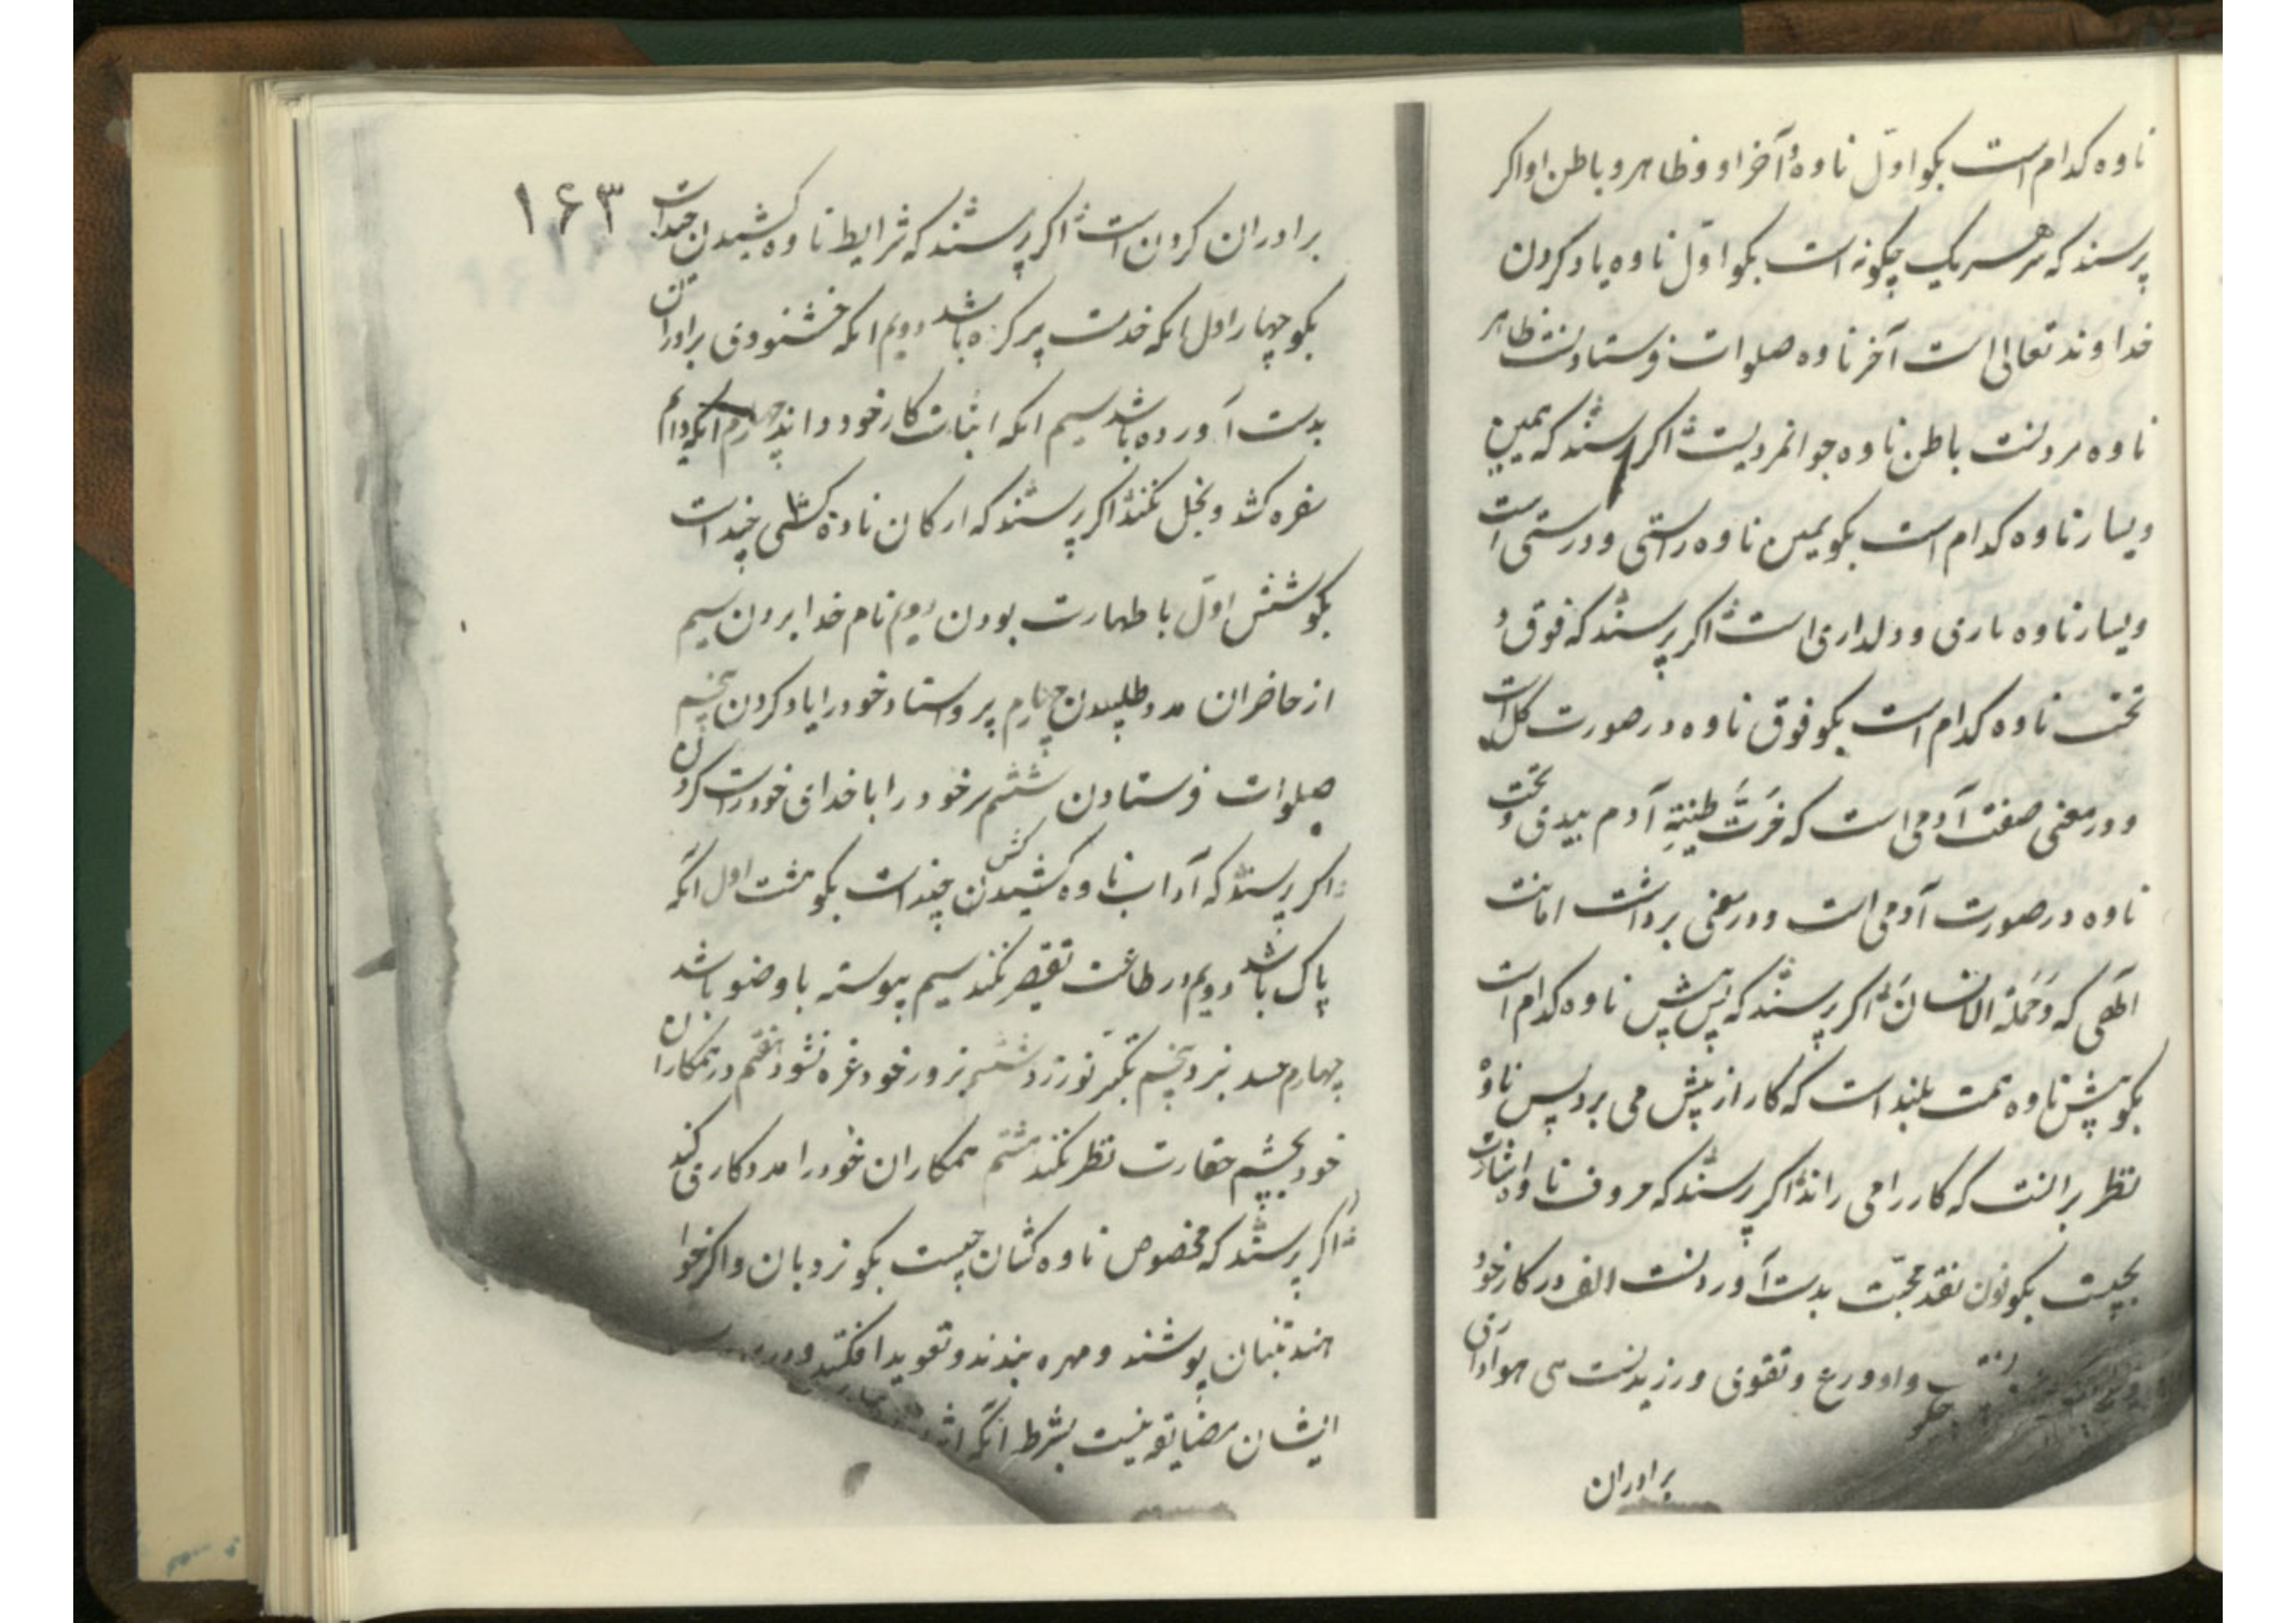 ناوه کدام است بکو اوّل ناوهٔ و آخر او و ظاهر و باطن او اکر
پرسند که هر یک چکونه است بکو اوّل ناوه یاد کردن
خداوند تعالی است آخر ناوه صلوات فرستادنست ظاهر
ناوه مردنست باطن ناوه جوانمردیست اکر پرسند که یمین
و یسار ناوه کدام است بکو یمین ناوه راستی و درستی است
و یسار ناوه یاری و دلداری است اکر پرسند که فوق و
تحت ناوه کدام است بکو فوق ناوه در صورت کل است
و در معنی صفت آدمی است که خَرَتَّ طینةِ آدم بیدی و تحت
ناوه در صورت آدمی است و در معنی برداشت امانت
الهی که وَحَمَلَهٰ الانسانُ اکر پرسند که پس پیش ناوه کدام است
بکو پیش ناوه همت بلند است که کار از پیش می برد پس ناوه
نظر برانست که کار را می راند اکر پرسند که حروف ناوه اشارت
بچیست بکو نون نقد محبّت بدست آوردنست الف در کار خود
واو ورع و تقوی ورزیدنست هی هواداری
برادران
۱۶۳
برادران کردن است اکر پرسند که شرایط ناوه کشیدن چند است
بکو چهار اول انکه خدمت پیر کرده باشد دویم انکه خشنودی برادران
بدست آورده باشد سیم انکه اثبات کار خود داند چهارم انکه دایم
سفره کشد و بخل نکند اکر پرسند که ارکان ناوه کشی چند است
بکو شش اوّل با طهارت بودن دویم نام خدا بردن سیم
از حاضران مدد طلبیدن چهارم پیر و استاد خود را یاد کردن پنجم
صلوات فرستادن ششم سر خود را با خدای خود راست کردن
اکر پرسند که آداب ناوه کشیدن چند است بکو هشت اول انکه
پاک باشد دویم در طاعت تقصیر نکند سیم پیوسته با وضو باشد
چهارم حسد نبرد پنجم تکبّر نورزد ششم بزور خود غره نشود هفتم در همکاران
خود بچشم حقارت نظر نکند هشتم همکاران خود را مددکاری کند
اکر پرسند که مخصوص ناوه کشان چیست بکو نردبان و اکر خوا
هند تنبان پوشند و مهره بندند و تعوید افکنند و در
ایشان مضایقه نیست بشرط انکه